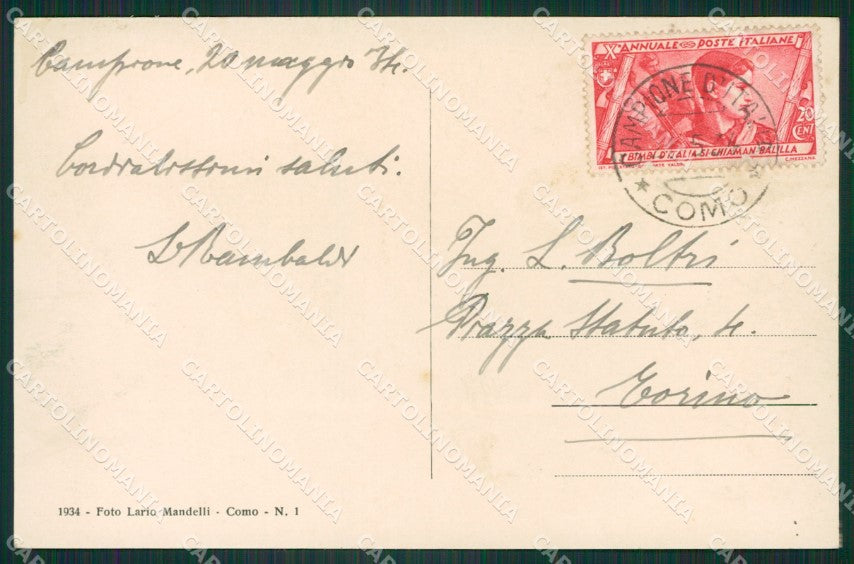 Campione, 20 maggio 34.
Cordialissimi saluti.
Rambaldi
Ing. L. Boltri
Piazza Statuto, 4.
Torino
1934 - Foto Lario Mandelli - Como - N. 1
X ANNUALE POSTE ITALIANE
20 CENT
BIMBI D'ITALIA SI CHIAMAN BALILLA
C. MEZZANA
CAMPIONE D'ITALIA
COMO
CARTOLINOMANIA